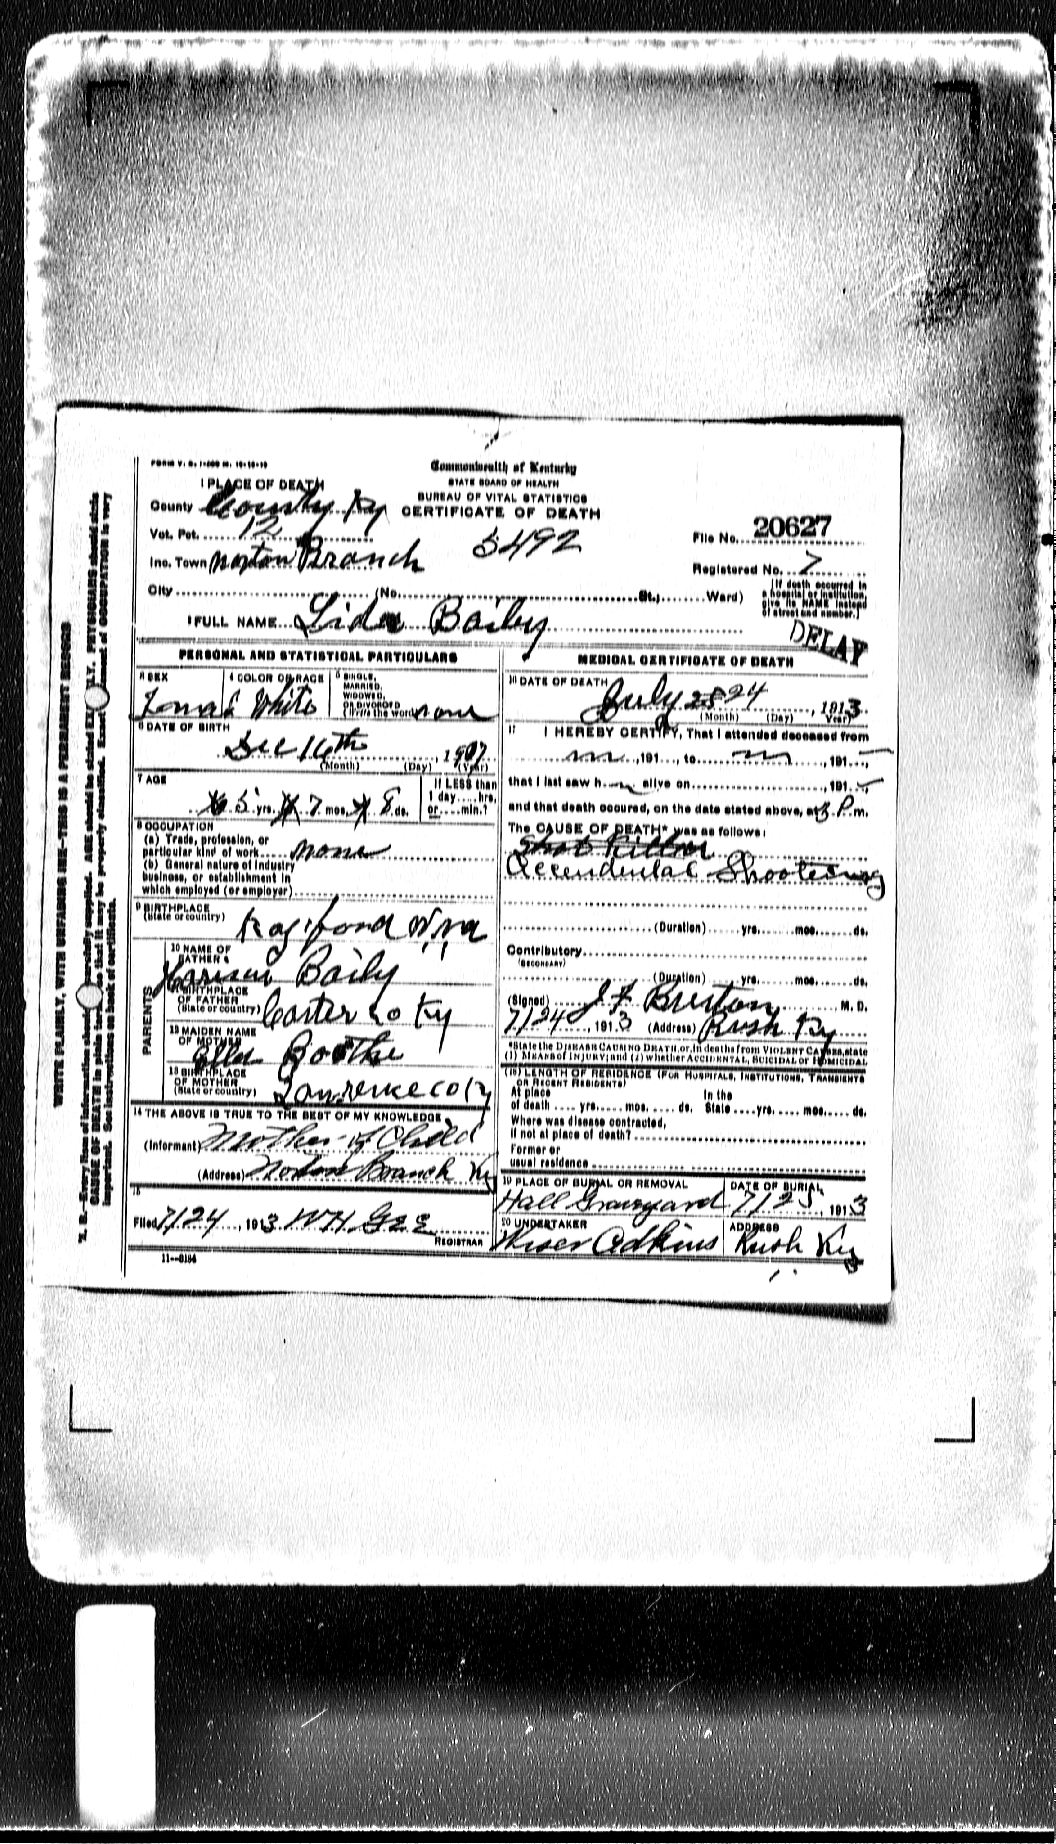 FORM V. S. 1-
Commonwealth of Kentucky
STATE BOARD OF HEALTH
BUREAU OF VITAL STATISTICS
CERTIFICATE OF DEATH
1 PLACE OF DEATH
County County Ky
Vot. Pct. 12
5492
File No. 20627
Inc. Town Norton Branch
Registered No. 7
City (No. St.; Ward)
(If death occurred in a hospital or institution, give its NAME instead of street and number.)
2 FULL NAME Lida Baily
DELAY
PERSONAL AND STATISTICAL PARTICULARS
3 SEX
4 COLOR OR RACE White
5 SINGLE, MARRIED, WIDOWED, OR DIVORCED (Write the word) none
6 DATE OF BIRTH
Dec 16th, 1907
(Month) (Day) (Year)
7 AGE
5 yrs. 7 mos. 8 ds.
If LESS than 1 day.... hrs. or.... min.?
8 OCCUPATION
(a) Trade, profession, or particular kind of work none
(b) General nature of industry business, or establishment in which employed (or employer)
9 BIRTHPLACE
(State or country) W. Va
10 NAME OF FATHER Harrison Baily
11 BIRTHPLACE OF FATHER (State or country) Carter Co Ky
12 MAIDEN NAME OF MOTHER Ellen Boothe
13 BIRTHPLACE OF MOTHER (State or country) Lawrence Co Ky
PARENTS
14 THE ABOVE IS TRUE TO THE BEST OF MY KNOWLEDGE
(Informant) Mother of Child
(Address) Norton Branch Ky
15
Filed 7/24, 1913 W H Gee
REGISTRAR
11—8184
MEDICAL CERTIFICATE OF DEATH
16 DATE OF DEATH
July 24, 1913
(Month) (Day) (Year)
17 I HEREBY CERTIFY, That I attended deceased from
, 191 , to , 191 ,
that I last saw h alive on , 191
and that death occured, on the date stated above, at 3 P.m.
The CAUSE OF DEATH* was as follows:
Shot Killed
Accendental Shooteing
(Duration) yrs. mos. ds.
Contributory
(SECONDARY)
(Duration) yrs. mos. ds.
(Signed) J F Bruton M. D.
7/24, 1913 (Address) Rush Ky
*State the DISEASE CAUSING DEATH or, in deaths from VIOLENT CAUSES, state
(1) MEANS OF INJURY; and (2) whether ACCIDENTAL, SUICIDAL or HOMICIDAL
(18) LENGTH OF RESIDENCE (FOR HOSPITALS, INSTITUTIONS, TRANSIENTS OR RECENT RESIDENTS)
At place of death .... yrs. .... mos. .... ds. In the State .... yrs. .... mos. .... ds.
Where was disease contracted, if not at place of death?
Former or usual residence
19 PLACE OF BURIAL OR REMOVAL
Hall Graveyard
DATE OF BURIAL
7/25, 1913
20 UNDERTAKER
Wiser Adkins
ADDRESS
Rush Ky
WRITE PLAINLY, WITH UNFADING INK—THIS IS A PERMANENT RECORD
N. B.—Every item of information should be carefully supplied. AGE should be stated EXACTLY. PHYSICIANS should state
CAUSE OF DEATH in plain terms, so that it may be properly classified. Exact statement of OCCUPATION is very
important. See instructions on back of certificate.